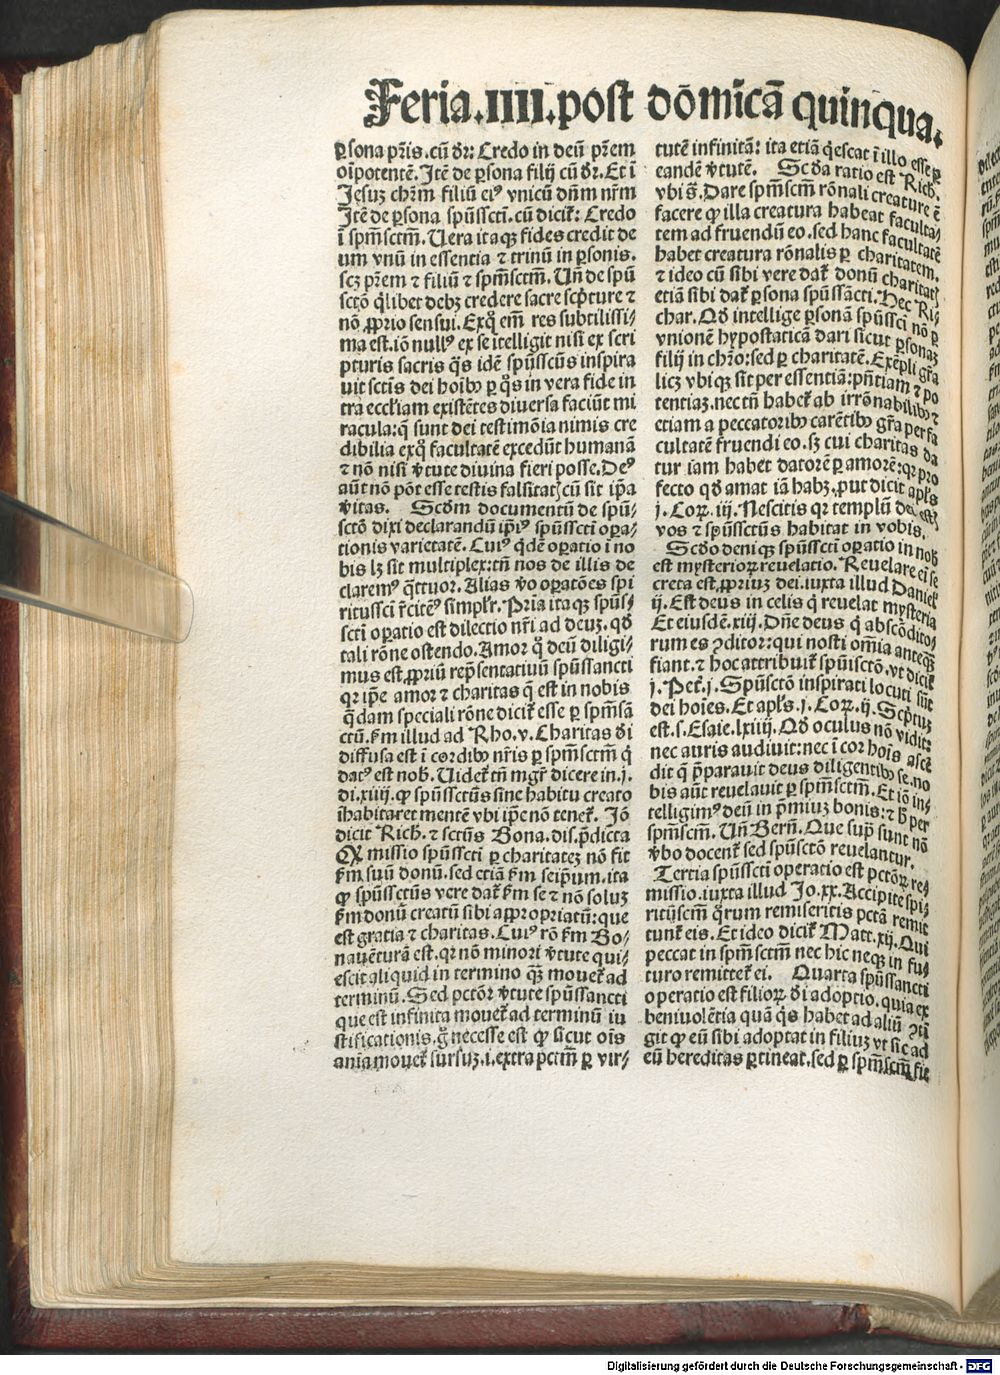 Feria.IIII.post dōmicā quinqua.
ꝑsona pr̄is.cū dr̄: Credo in deū pr̄em
oīpotentē. Jtē de ꝑsona filij cū dr̄. Et ī
Jesuꝫ chr̄m filiū eiꝰ vnicū dn̄m nr̄m
Jtē de ꝑsona spūssctī. cū dicit̄: Credo
ī spm̄sctm̄. Uera itaqꝫ fides credit de
um vnū in essentia ⁊ trinū in ꝑsonis.
scꝫ pr̄em ⁊ filiū ⁊ spm̄sctm̄. Un̄ de spū
sctō q̄libet debꝫ credere sacre scpt̄ure ⁊
nō ꝓprio sensui. Exq̄ em̄ res subtilissi-
ma est.iō nullꝰ ex se ītelligit nisi ex scri
pturis sacris q̄s idē spūsscūs inspira
uit sctīs dei hoībꝰ ꝑ q̄s in vera fide in
tra eccl'iam existētes diuersa faciūt mi
racula:q̄ sunt dei testimōia nimis cre
dibilia exq̄ facultatē excedūt humanā
⁊ nō nisi v̄tute diuina fieri posse. Deꝰ
aūt nō pōt esse testis falsitatꝭ cū sit ip̄a
v̄itas. Scd̄m documentū de spū/
sctō dixi declarandū ip̄iꝰ spūssctī oꝑa/
tionis varietatē. Cuiꝰ q̄dē oꝑatio ī no
bis lꝫ sit multiplex:tn̄ nos de illis de
claremꝰ q̄ttuor. Alias v̄o oꝑatōes spi
ritussctī r̄citēꝰ simpl'r. Prīa itaqꝫ spūs/
sctī oꝑatio est dilectio nr̄i ad deuꝫ. qd̄
tali rōne ostendo. Amor q̄ deū diligi/
mus est ꝓpriū repn̄sentatiuū spūssancti
qr ip̄e amor ⁊ charitas q̄ est in nobis
q̄dam speciali rōne dicit̄ esse ꝑ spm̄sā
ctū. km̄ illud ad Rho.v. Charitas dī
diffusa est ī cordibꝰ nr̄is ꝑ spm̄sctm̄ q̄
datꝰ est nob̄. Uidet̄ tn̄ mgr̄ dicere in.j.
di.xiiij. ꝙ spūssctūs sine habitu creato
īhabitaret mentē vbi ip̄e nō tenet̄. Jō
dicit Rich̄. ⁊ sctūs Bona. dis.p̄dicta
Qꝫ missio spūssctī ꝑ charitateꝫ nō fit
km̄ suū donū. sed etiā km̄ seip̄um. ita
ꝙ spūssctūs vere dat̄ km̄ se ⁊ nō soluꝫ
km̄ donū creatū sibi appropriatū: que
est gratia ⁊ charitas. Cuiꝰ rō km̄ Bo/
nauēturā est. qr nō minori v̄tute qui/
escit aliquid in termino qꝫ mouet̄ ad
terminū. Sed pctōr v̄tute spūssancti
que est infinita mouet̄ ad terminū iu
stificationis. g̊ necesse est ꝙ sicut oīs
anīa mouet̄ sursuꝫ.i. extra pctm̄ ꝑ vir/
tutē infinitā: ita etiā q̄escat ī illo esse ꝑ
eandē v̄tutē. Scd̄a ratio est Rich̄.
vbi s̄. Dare spm̄scm̄ rōnali creature ē
facere ꝙ illa creatura habeat faculta/
tem ad fruendū eo. sed hanc facultatē
habet creatura rōnalis ꝑ charitatem.
⁊ ideo cū sibi vere dat̄ donū charitatꝭ
etiā sibi dat̄ ꝑsona spūssācti. Hec Ri/
char. Qd̄ intellige ꝑsonā spūsscī nō ꝑ
vnionē hypostaticā dari sicut ꝑsonaꝫ
filij in chr̄o:sed ꝑ charitatē. Exēpli gr̄a
licꝫ vbiqꝫ sit per essentiā:pn̄tiam ⁊ po
tentiaꝫ. nec tn̄ habet̄ ab irrōnabilibꝰ ⁊
etiam a peccatoribꝰ carētibꝰ gr̄a per fa
cultatē fruendi eo. sꝫ cui charitas da
tur iam habet datorē ꝑ amorē:qr pro
fecto qd̄ amat iā habꝫ. put dicit apl's
j. Coꝝ. iij. Nescitis qr templū dei estꝭ
vos ⁊ spūssctūs habitat in vobis.
Scd̄o deniqꝫ spūssctī oꝑatio in nob̄
est mysterioꝝ reuelatio. Reuelare ei se
creta est ꝓpriuꝫ dei. iuxta illud Daniel̄
ij. Est deus in celis q̄ reuelat mysteria
Et eiusdē.xiij. Dn̄e deus q̄ abscōdito/
rum es ꝯditor:qui nosti om̄ia anteqꝫ
fiant. ⁊ hoc attribuit̄ spūisctō. vt dicit̄
j. Pet̄.j. Spūsctō inspirati locuti sūt
dei hoīes. Et apl's. j. Coꝝ. ij. Scpt̄uꝫ
est. s. Esaie. lxiiij. Qd̄ oculus nō vidit:
nec auris audiuit: nec ī cor hoīs ascē
dit q̄ p̄parauit deus diligentibꝰ se. no
bis aūt reuelauit ꝑ spm̄sctm̄. Et iō in/
telligimꝰ deū in p̄miuꝫ bonis: ⁊ h̄ per
spm̄scm̄. Un̄ Bern̄. Que sup̄ sunt nō
v̄bo docent̄ sed spūsctō reuelantur.
Tertia spūssctī operatio est pctōꝝ re/
missio. iuxta illud Jo.xx. Accipite spi/
ritūscm̄ q̄rum remiseritis pctā remit
tunt̄ eis. Et ideo dicit̄ Matt. xij. Qui
peccat in spm̄sctm̄ nec hic neqꝫ in fu/
turo remittet̄ ei. Quarta spūssancti
operatio est filioꝝ dī adoptio. quia ex
beniuolētia quā q̄s habet ad aliū ꝯtī
git ꝙ eū sibi adoptat in filiuꝫ vt sic ad
eū hereditas ꝑtineat. sed ꝑ spm̄scm̄ fit
Digitalisierung gefördert durch die Deutsche Forschungsgemeinschaft - DFG